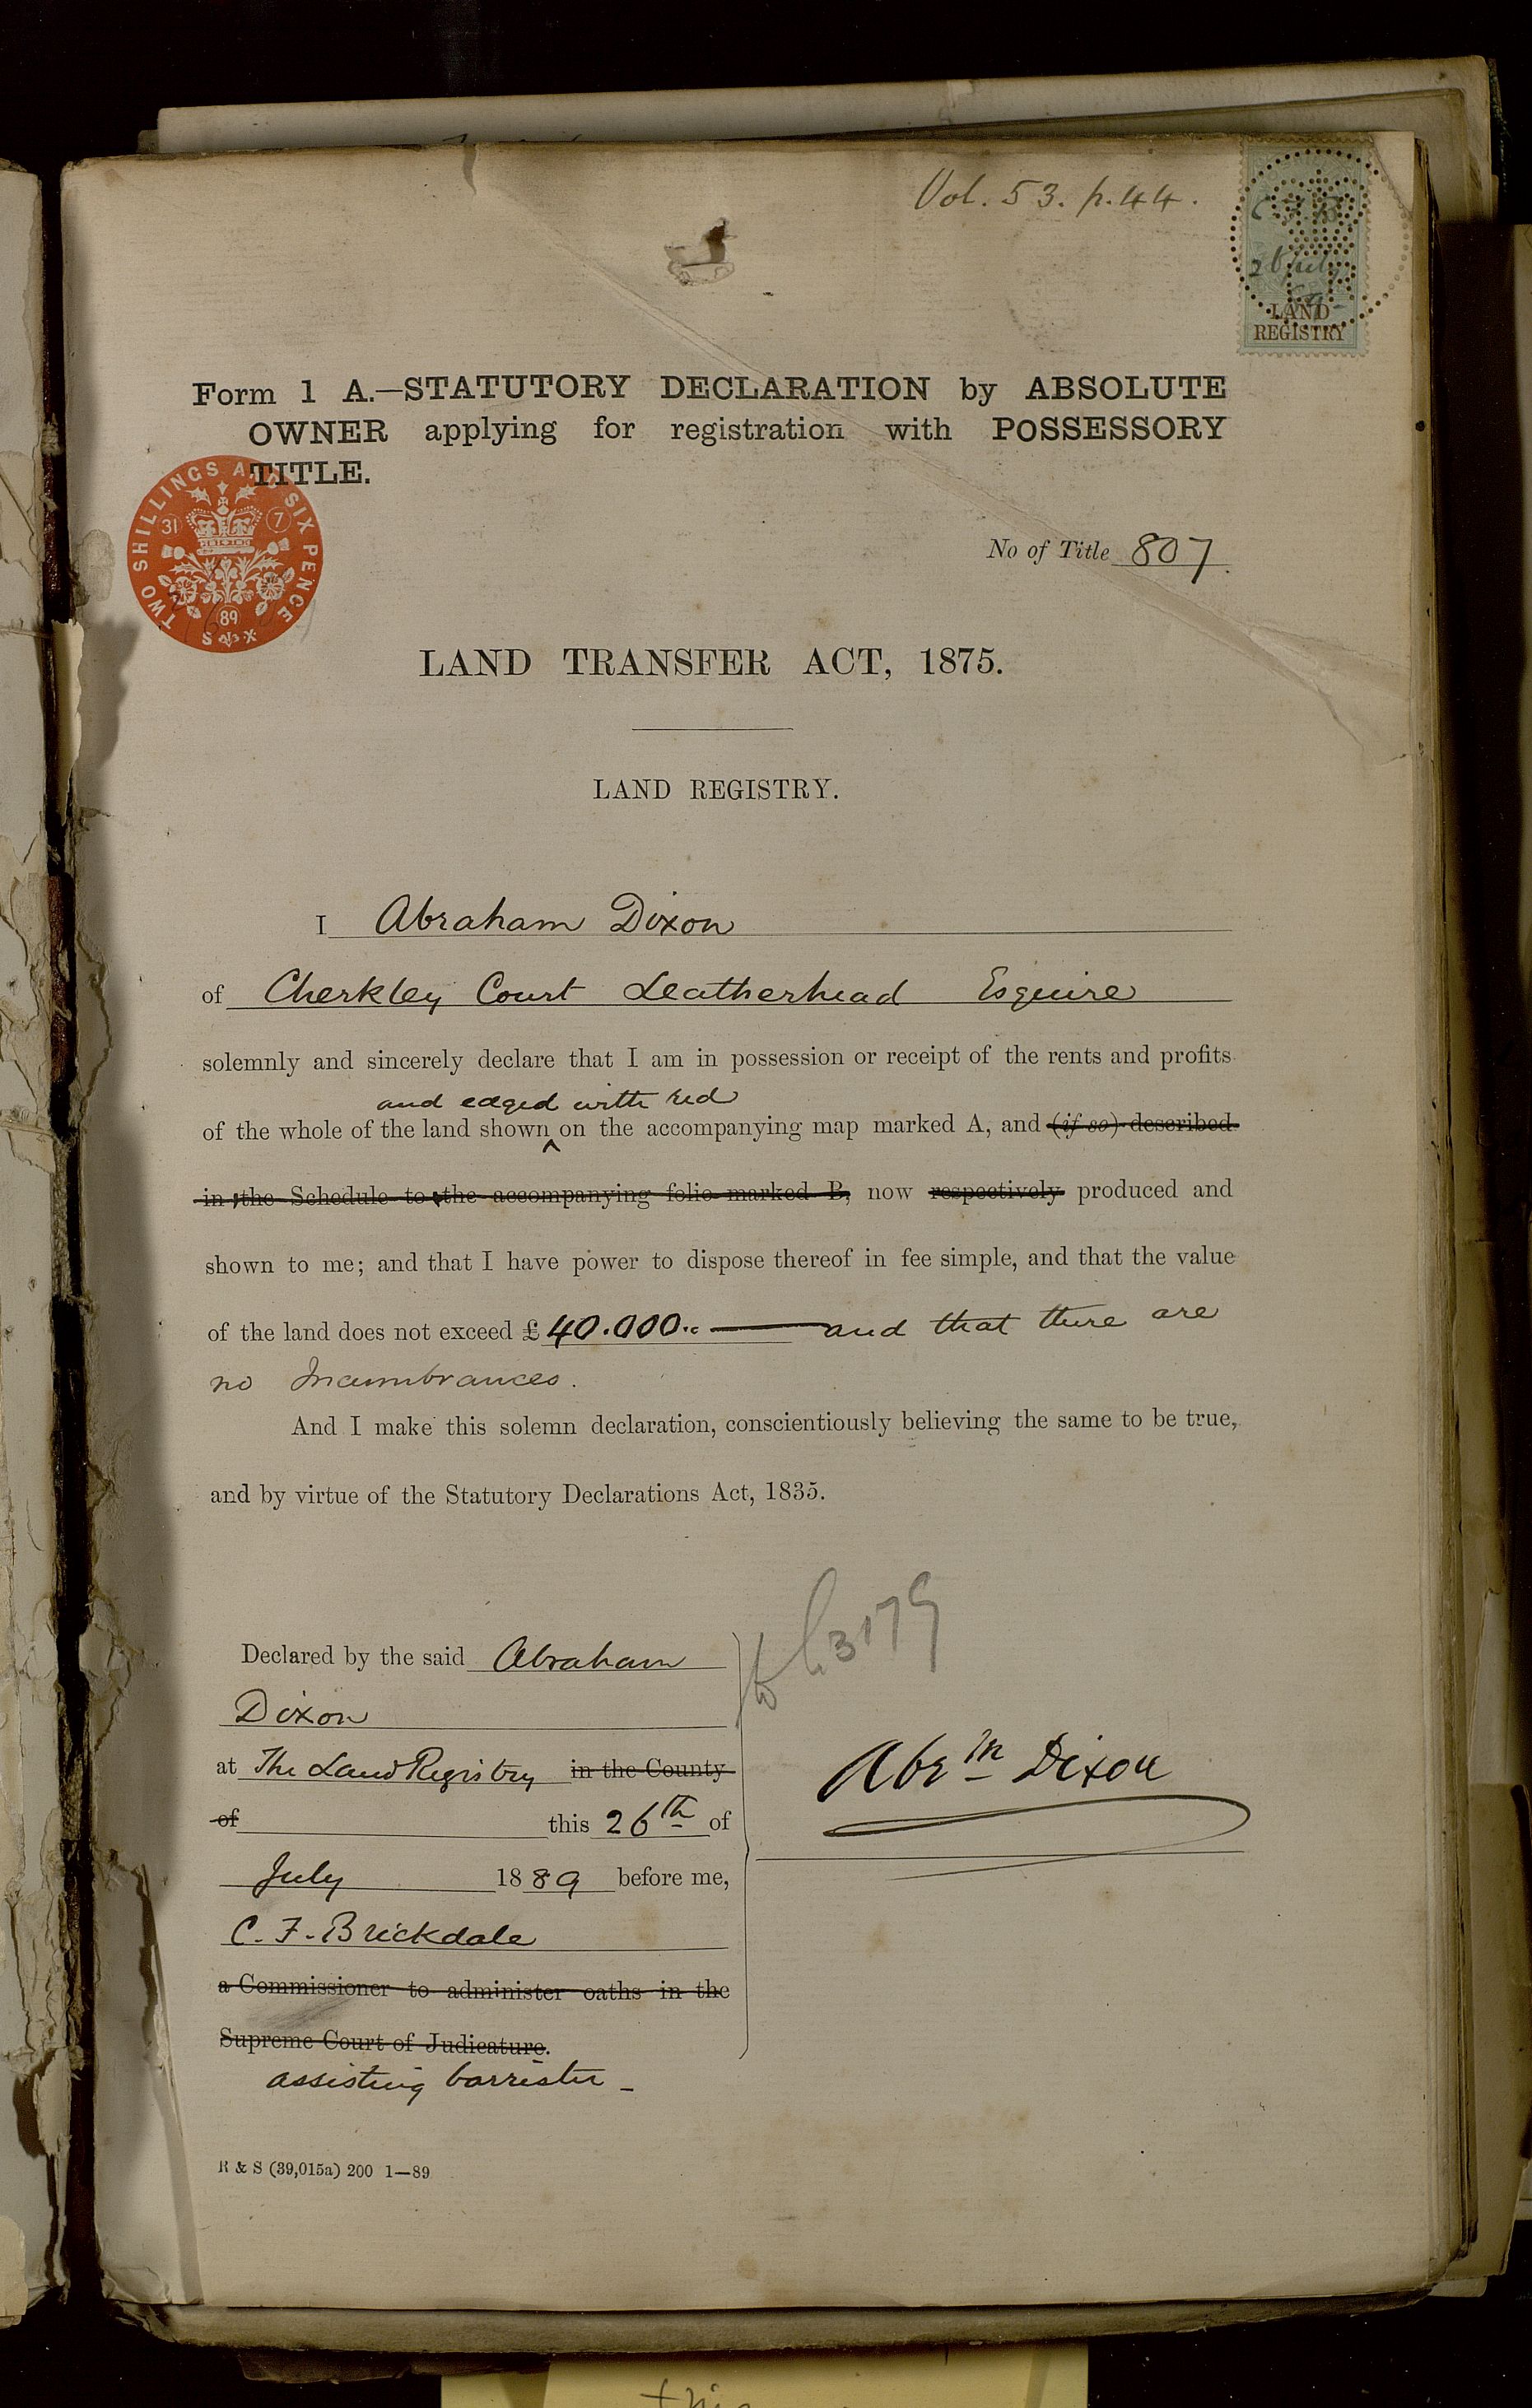 Vol. 53. p. 44.
26 July
LAND
REGISTRY
Form 1 A.—STATUTORY DECLARATION by ABSOLUTE
OWNER applying for registration with POSSESSORY
TITLE.
TWO SHILLINGS AND SIX PENCE
31 7
89
No of Title 807.
LAND TRANSFER ACT, 1875.
LAND REGISTRY.
I Abraham Dixon
of Cherkley Court Leatherhead Esquire
solemnly and sincerely declare that I am in possession or receipt of the rents and profits
and edged with red
of the whole of the land shown ^ on the accompanying map marked A, and (if so) described
in the Schedule to the accompanying folio marked B, now respectively produced and
shown to me; and that I have power to dispose thereof in fee simple, and that the value
of the land does not exceed £ 40.000 and that there are
no Incumbrances.
And I make this solemn declaration, conscientiously believing the same to be true,
and by virtue of the Statutory Declarations Act, 1835.
3179
Declared by the said Abraham
Dixon
at The Land Registry in the County
of this 26th of
July 1889 before me,
C. F. Brickdale
a Commissioner to administer oaths in the
Supreme Court of Judicature.
assisting barrister
Abrm Dixon
R & S (39,015a) 200 1—89
this